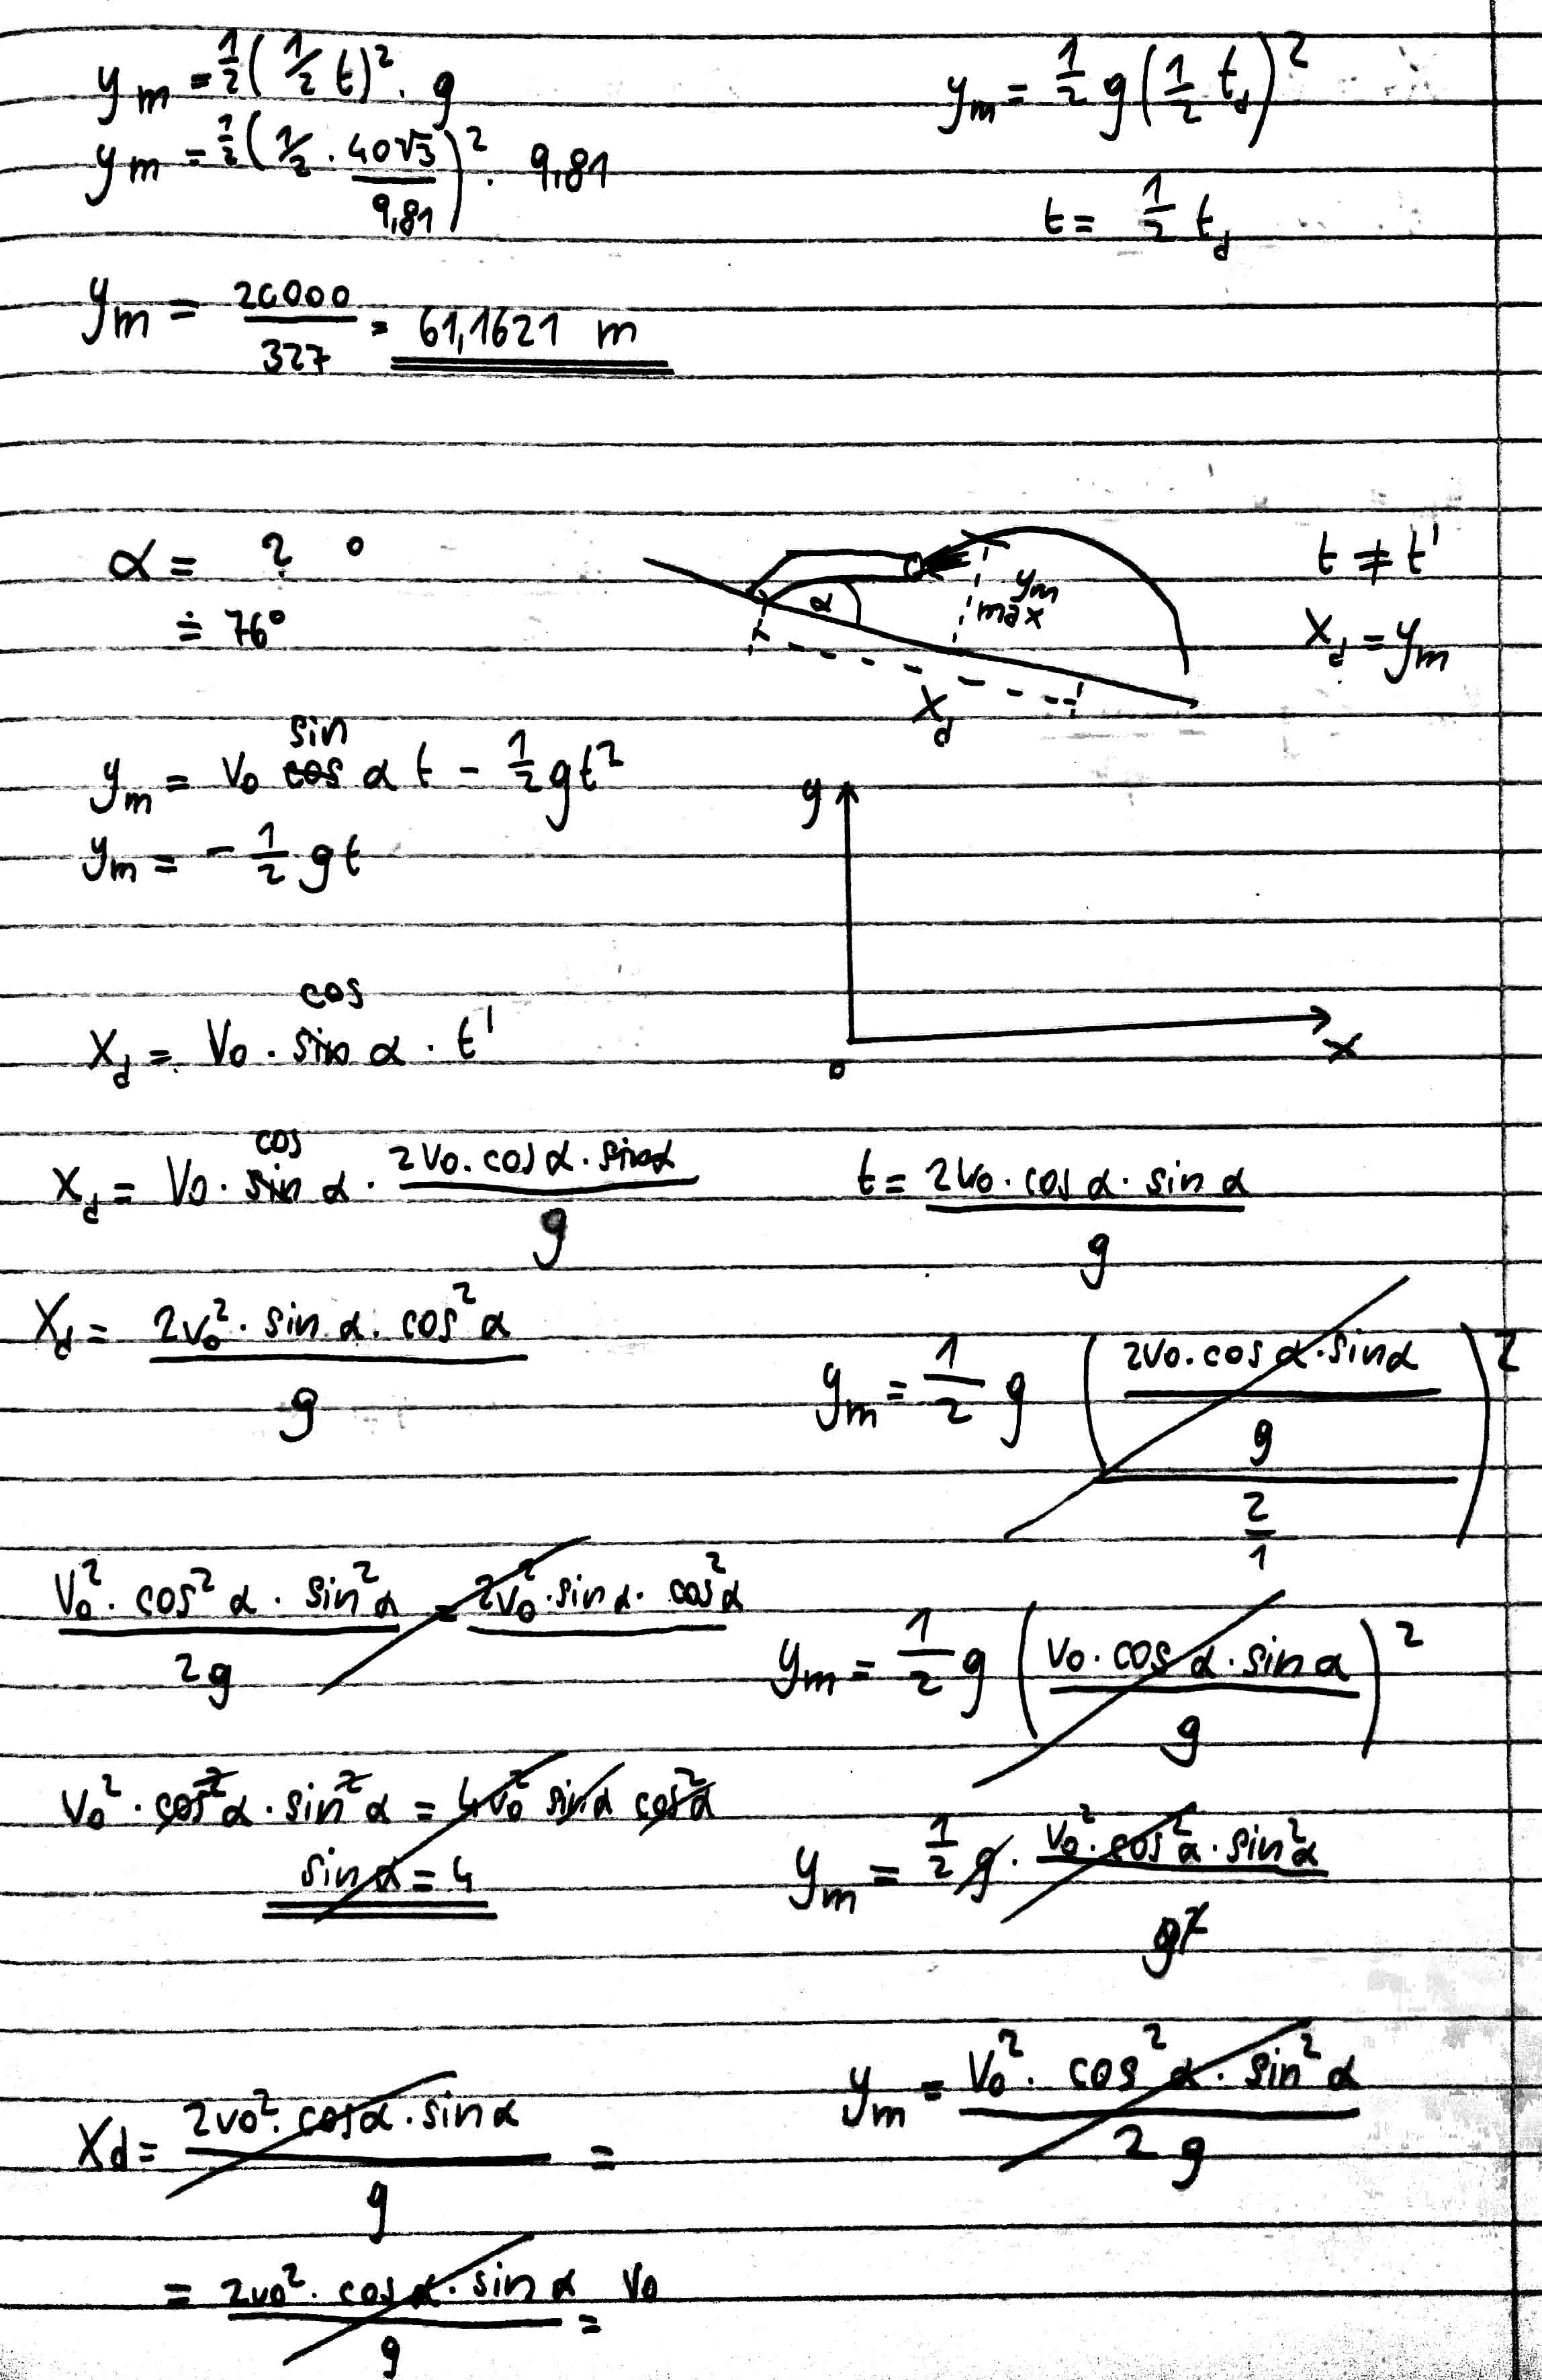 y_m = 1/2 (1/2 t)² · g
y_m = 1/2 g (1/2 t_d)²
y_m = 1/2 (1/2 · 40√3 / 9,81)² · 9,81
t = 1/2 t_d
y_m = 20000 / 327 = 61,1621 m
α = ? °
≐ 76°
α
y_m max
x_d
t ≠ t'
x_d = y_m
sin
y_m = v₀ cos α t - 1/2 gt²
y_m = - 1/2 gt
y
x
0
cos
x_d = v₀ · sin α · t'
cos
x_d = v₀ · sin α · 2v₀ · cos α · sin α / g
t = 2v₀ · cos α · sin α / g
x_d = 2v₀² · sin α · cos² α / g
y_m = 1/2 g ((2v₀ · cos α · sin α / g) / (2/1))²
v₀² · cos² α · sin² α / 2g = 2v₀² · sin α · cos² α
y_m = 1/2 g (v₀ · cos α · sin α / g)²
v₀² · cos² α · sin² α = 4v₀² sin α cos² α
sin α = 4
y_m = 1/2 g · v₀² · cos² α · sin² α / g²
x_d = 2v₀² · cos α · sin α / g =
y_m = v₀² · cos² α · sin² α / 2g
= 2v₀² · cos α · sin α / g = v₀